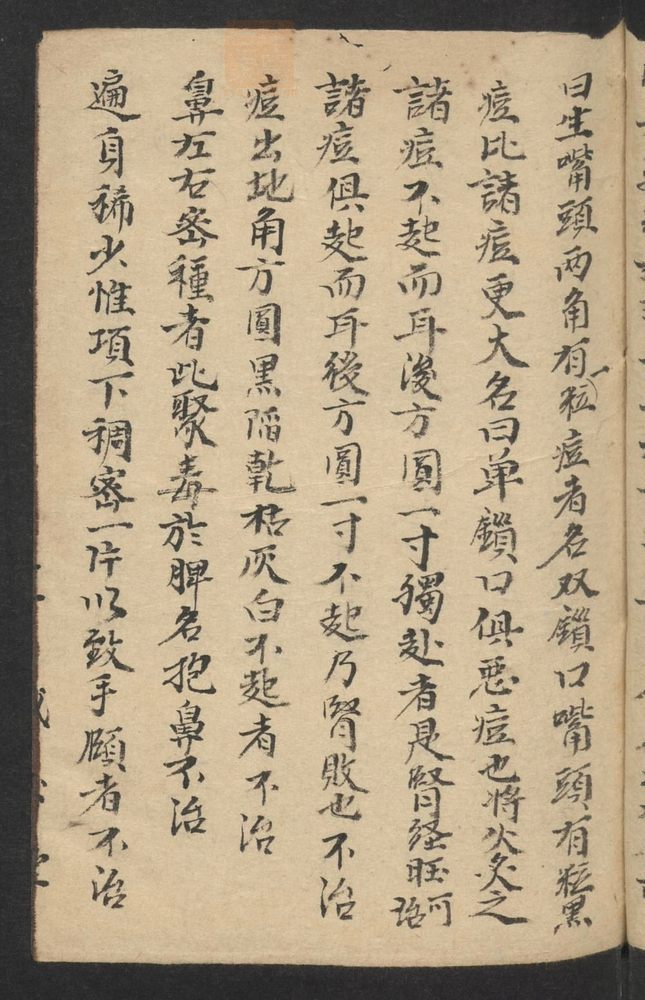 曰生嘴頭两角有一粒痘者名双鎖口嘴頭有粒黑
痘比諸痘更大名曰单鎖口俱惡痘也将火灸之
諸痘不起而耳後方圓一寸獨起者是腎経旺可治
諸痘俱起而耳後方圓一寸不起乃腎敗也不治
痘出地角方圓黑陷乾枯灰白不起者不治
鼻左右密種者此聚毒於脾名抱鼻不治
遍身稀少惟項下稠密一片以致手頤者不治